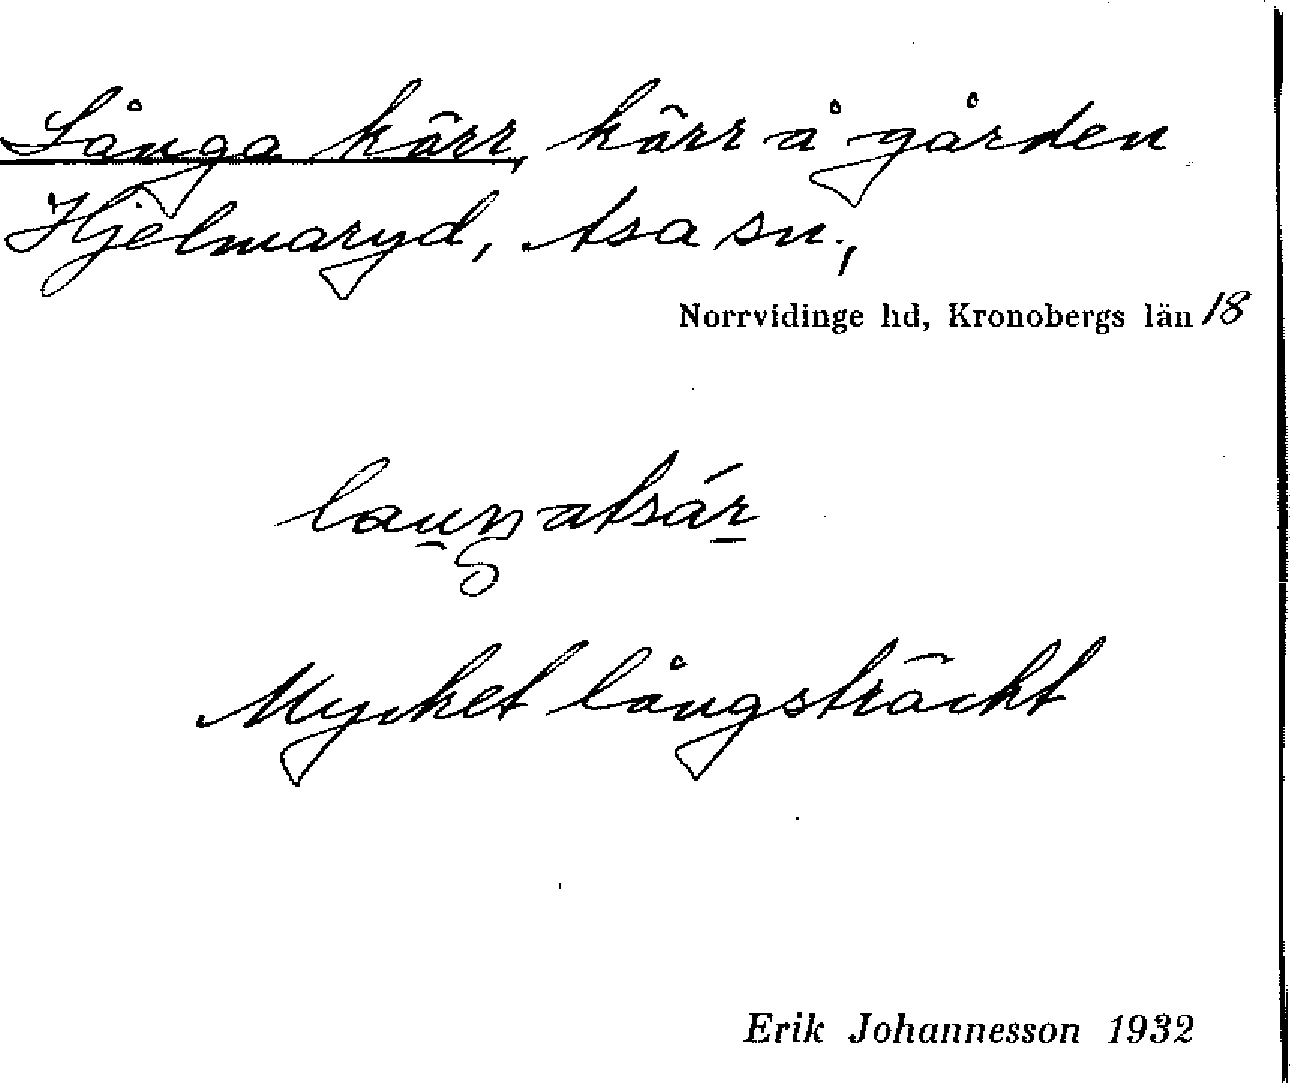 Långa kärr, kärr å gården
Hjelmaryd, Asa sn.,
Norrvidinge hd, Kronobergs län 18
lau̯ŋatsár̲
Mycket långsträckt
Erik Johannesson 1932